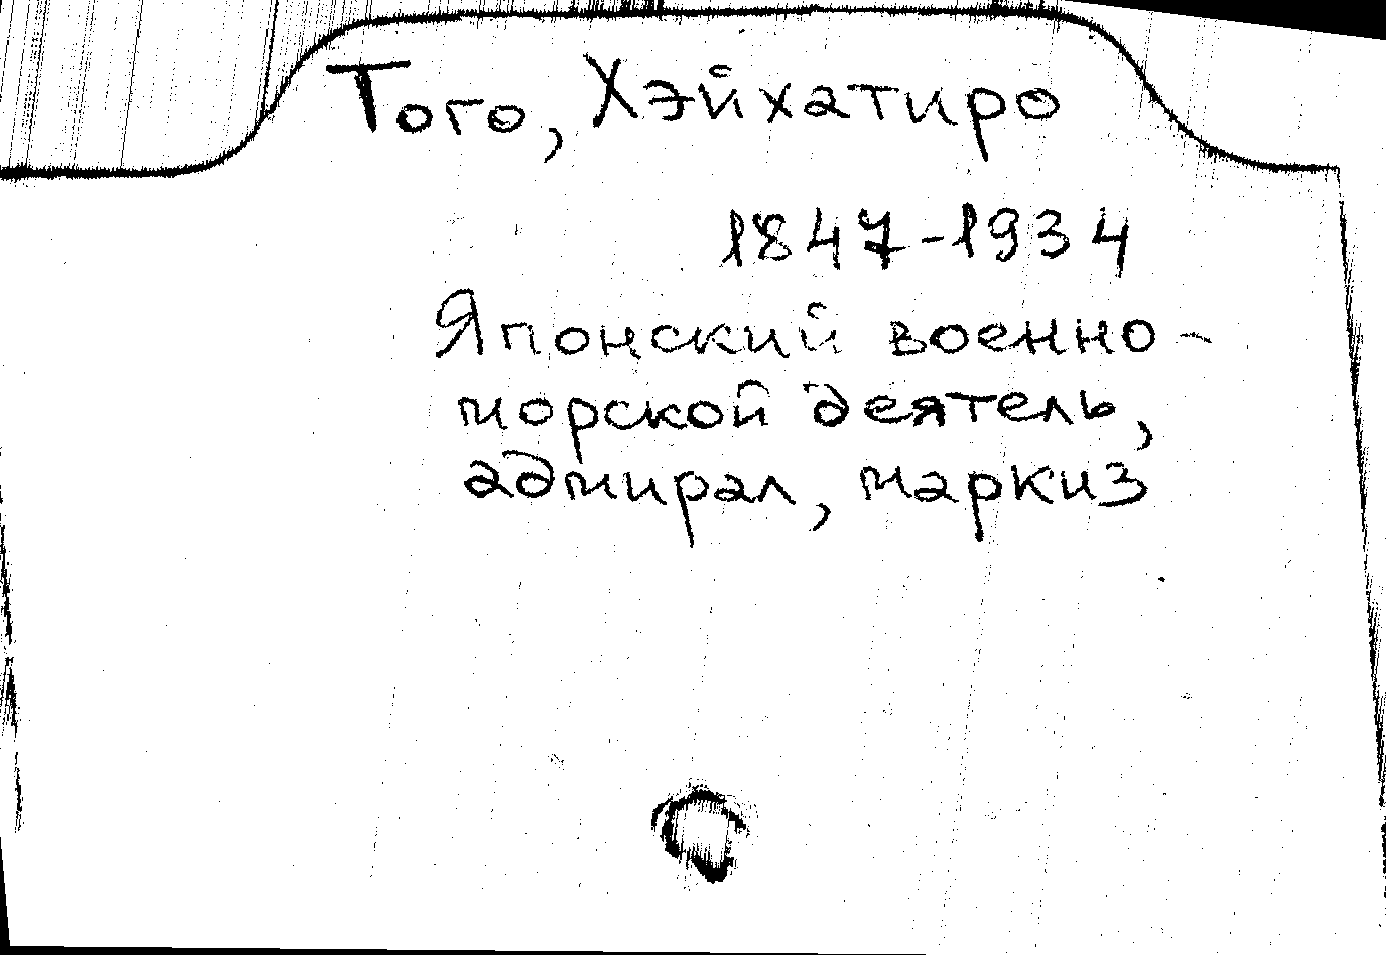 Того, Хэйхатиро
1847-1934
Японский военно-
морской деятель,
адмирал, маркиз